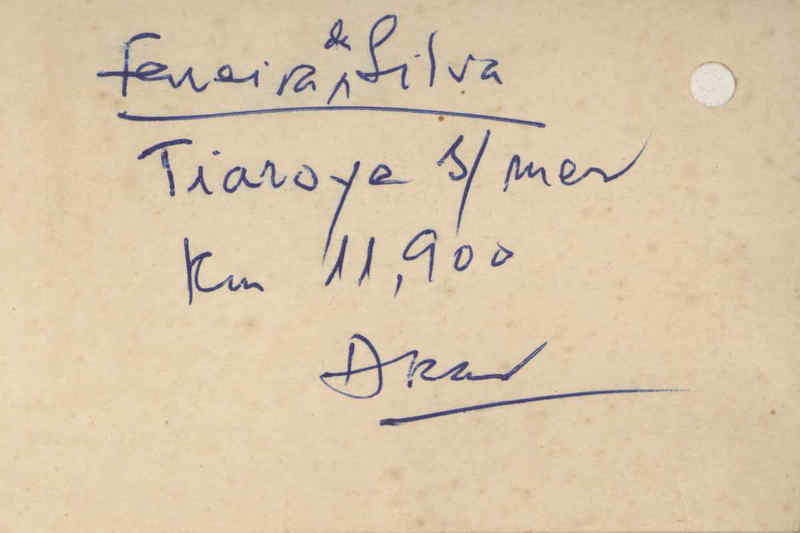 Ferreira de Silva
Tiaroye s/ mer
Km 11,900
Dkar